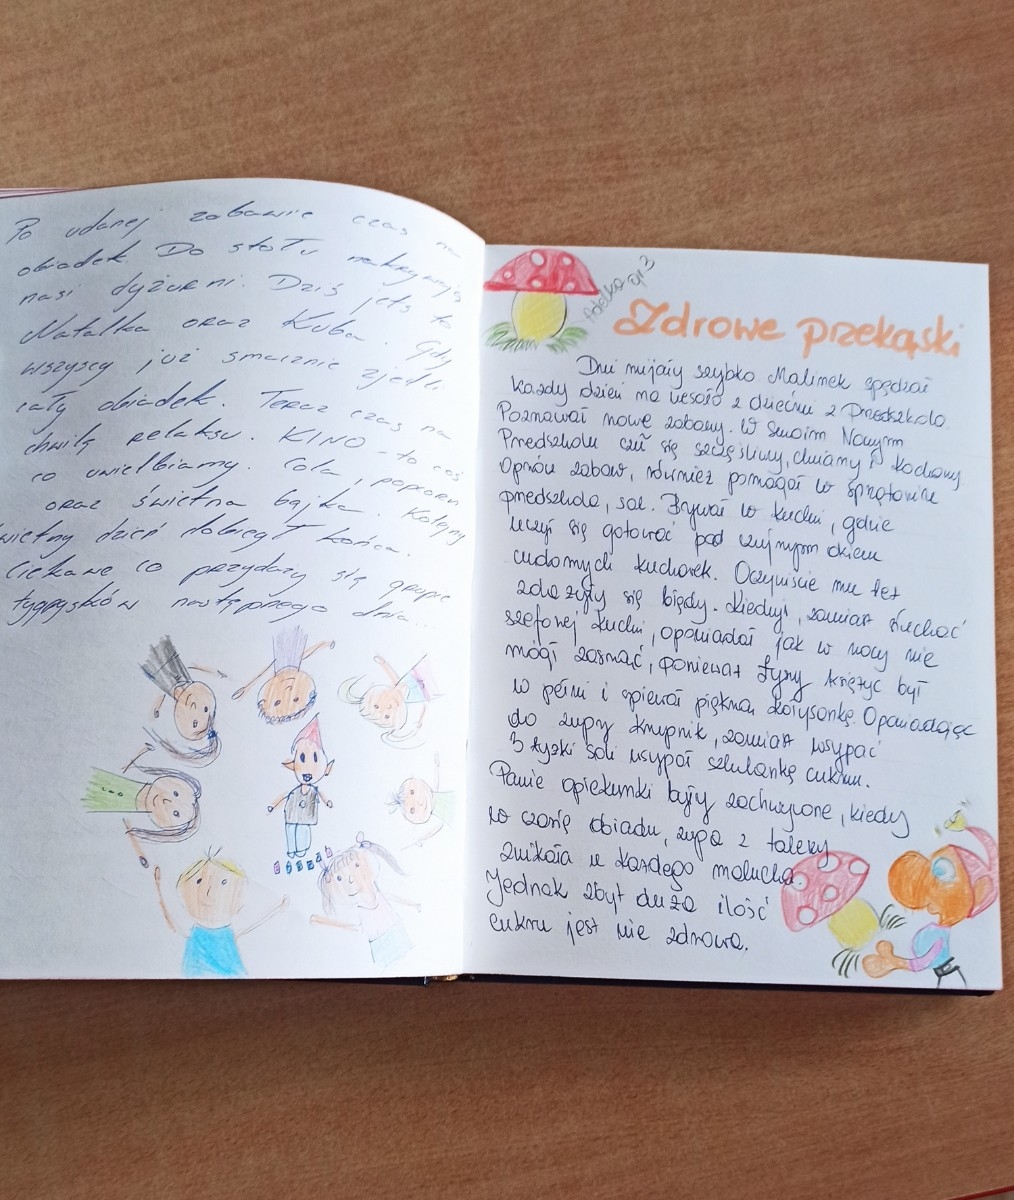 Po udanej zabawie czas na
obiadek Do stołu nakrywają
nasi dyżurni. Dziś jets to
Natalka oraz Kuba. Gdy
wszyscy już smacznie zjedli
cały obiadek. Teraz czas na
chwilę relaksu. KINO - to coś
co uwielbiamy. Cola, popcorn
oraz świetna bajka. Kolejny
świetny dzień dobiegł końca.
Ciekawe co przydaży się grupie
tygrysków następnego dnia...
Adelka gr 3
Zdrowe przekąski
Dni mijały szybko Malinek spędzał
każdy dzień na wesoło z dziećmi z Przedszkola
Poznawał nowe zabawy. W swoim Nowym
Przedszkolu czuł się szczęśliwy, chciany i kochany
Oprócz zabaw, również pomagał w sprzątaniu
przedszkola, sal. Bywał w kuchni, gdzie
uczył się gotować pod czujnym okiem
cudownych kucharek. Oczywiście mu też
zdarzyły się błędy. Kiedyś, zamiast słuchać
szefowej kuchni, opowiadał jak w nocy nie
mógł zasnąć, ponieważ Łysy księżyc był
w pełni i śpiewał piękna kołysankę. Opowiadając
do zupy krupnik, zamiast wsypać
3 łyżki soli wsypał szklankę cukru.
Panie opiekunki były zachwycone, kiedy
w czasie obiadu, zupa z talerzy
znikała u każdego malucha
Jednak zbyt duża ilość
cukru jest nie zdrowa.